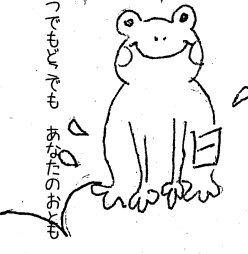 つでもどこでも　あなたのおとも